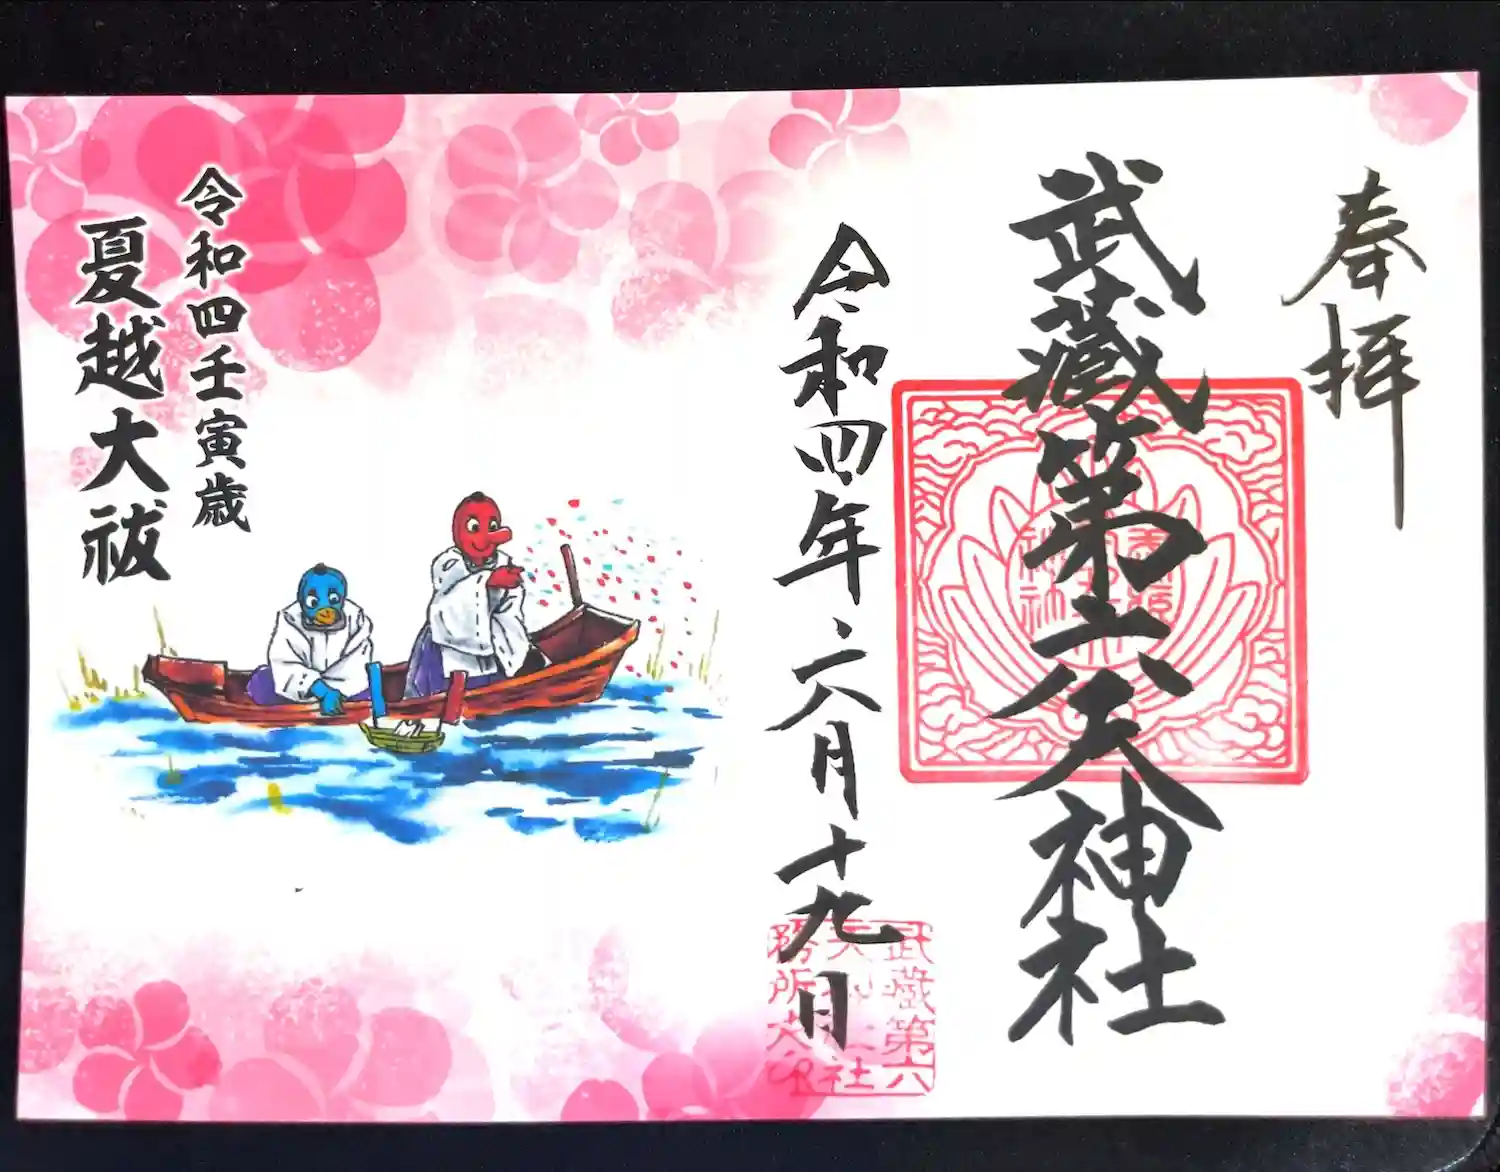 奉拝
武蔵第六天神社
令和四年六月十九日
武蔵第六
天神社
務所之印
令和四壬寅歳
夏越大祓